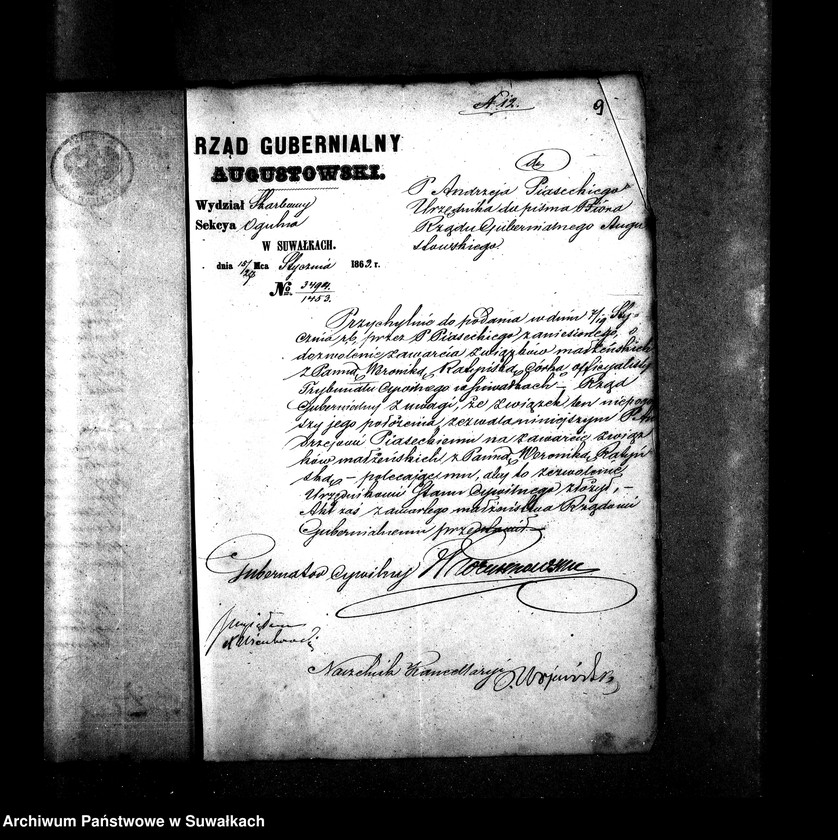 N. 12.
9
RZĄD GUBERNIALNY
AUGUSTOWSKI.
Wydział Skarbowy
Sekcya Ogólna
W SUWAŁKACH.
dnia 15/27 Mca Stycznia 1863. r.
No. 3494/1453.
do
P Andrzeja Piaseckiego
Urzędnika do pisma Biora
Rządu Gubernialnego Augu
stowskiego
Przychylnie do podania w dniu 7/19 Sty-
cznia rb, przez P Piaseckiego zaniesionego, o
dozwolenie zawarcia związków małżeńskich
z Panną Weroniką Ratyńską córką officyalisty
Trybunału Cywilnego w Suwałkach – Rząd
Gubernialny z uwagi, że związek ten niepogor
szy jego położenia zezwala niniejszym P. An
drzejowi Piaseckiemu na zawarcie związ
ków małżeńskich z Panną Weroniką Ratyń
ską, – polecając mu, aby to zezwolenie
Urzędnikowi Stanu Cywilnego złożył, –
Akt zaś zawartego małżeństwa Rządowi
Gubernialnemu przedstawił
Gubernator Cywilny
Naczelnik Kancellaryi
Archiwum Państwowe w Suwałkach